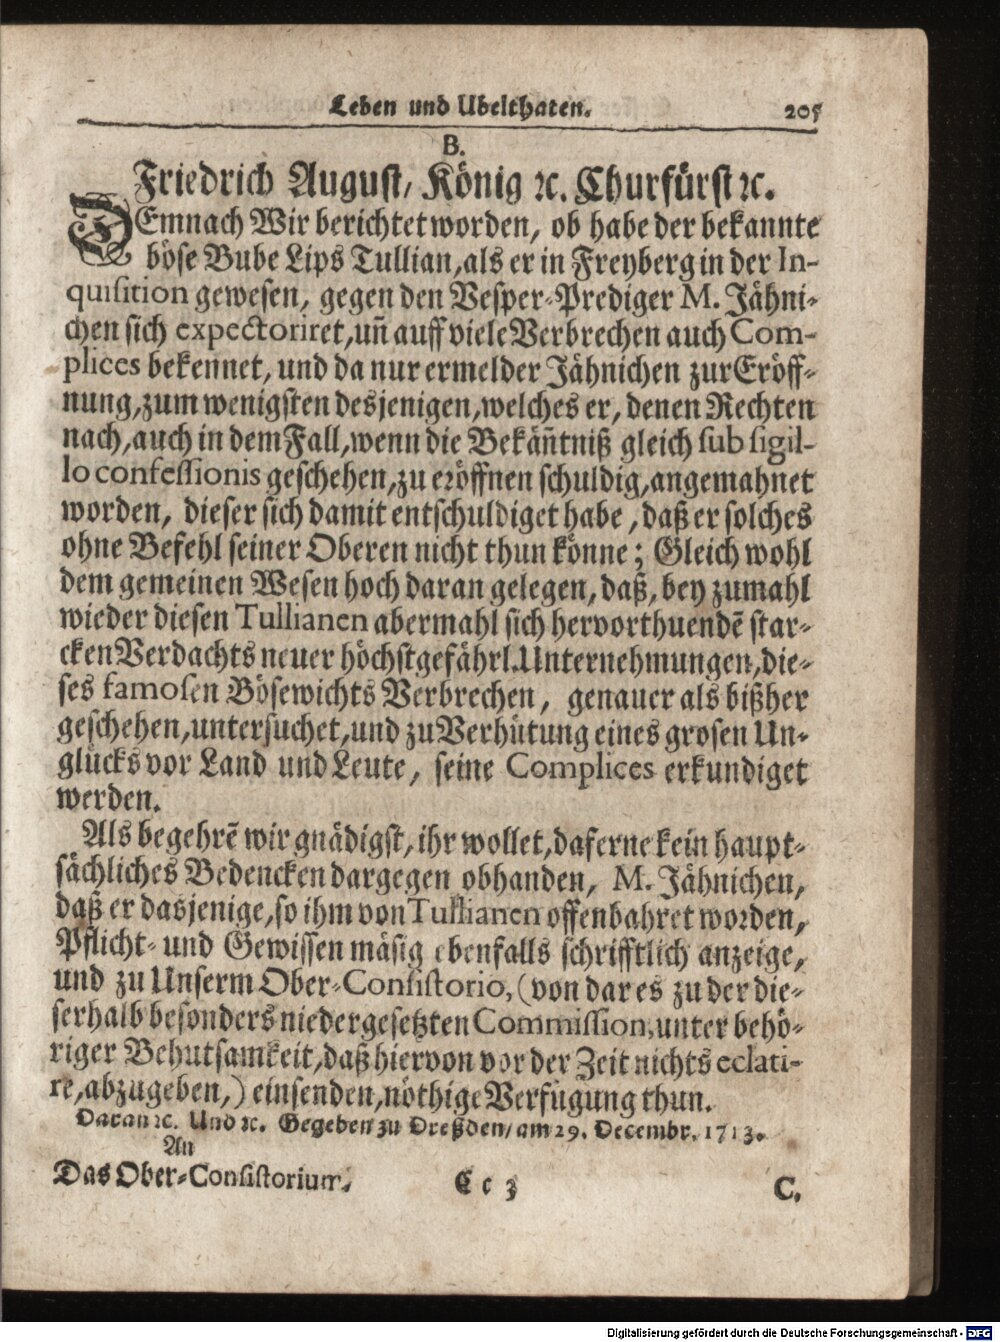 Leben und Ubelthaten. 205
B.
Friedrich August, König ꝛc. Churfürst ꝛc.
DEmnach Wir berichtet worden, ob habe der bekannte
böse Bube Lips Tullian, als er in Freyberg in der In-
quisition gewesen, gegen den Vesper-Prediger M. Jähni-
chen sich expectoriret, uñ auff viele Verbrechen auch Com-
plices bekennet, und da nur ermelder Jähnichen zur Eröff-
nung, zum wenigsten desjenigen, welches er, denen Rechten
nach, auch in dem Fall, wenn die Bekäñtniß gleich sub sigil-
lo confessionis geschehen, zu eröffnen schuldig, angemahnet
worden, dieser sich damit entschuldiget habe, daß er solches
ohne Befehl seiner Oberen nicht thun könne; Gleich wohl
dem gemeinen Wesen hoch daran gelegen, daß, bey zumahl
wieder diesen Tullianen abermahl sich hervorthuendē star-
cken Verdachts neuer höchstgefährl. Unternehmungen, die-
ses famosen Bösewichts Verbrechen, genauer als bißher
geschehen, untersuchet, und zu Verhütung eines grosen Un-
glücks vor Land und Leute, seine Complices erkundiget
werden.
Als begehrē wir gnädigst, ihr wollet, daferne kein haupt-
sächliches Bedencken dargegen obhanden, M. Jähnichen,
daß er dasjenige, so ihm von Tullianen offenbahret worden,
Pflicht- und Gewissen mäsig ebenfalls schrifftlich anzeige,
und zu Unserm Ober-Consistorio, (von dar es zu der die-
serhalb besonders niedergesetzten Commission, unter behö-
riger Behutsamkeit, daß hiervon vor der Zeit nichts eclati-
re, abzugeben,) einsenden, nöthige Verfügung thun.
Daran ꝛc. Und ꝛc. Gegeben zu Dreßden, am 29. Decembr. 1713.
An
Das Ober-Consistorium. Cc 3 C.
Digitalisierung gefördert durch die Deutsche Forschungsgemeinschaft - DFG